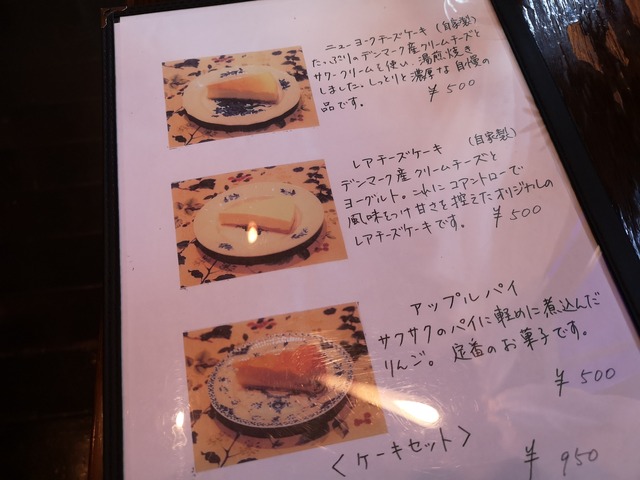 ニューヨークチーズケーキ (自家製)
たっぷりのデンマーク産クリームチーズと
サワークリームを使い、湯煎焼き
しました。しっとりと濃厚な自慢の
品です。
¥500
レアチーズケーキ (自家製)
デンマーク産クリームチーズと
ヨーグルト。これにコアントローで
風味をつけ甘さを控えたオリジナルの
レアチーズケーキです。 ¥500
アップルパイ
サクサクのパイに軽めに煮込んだ
りんご。定番のお菓子です。
¥500
<ケーキセット> ¥950